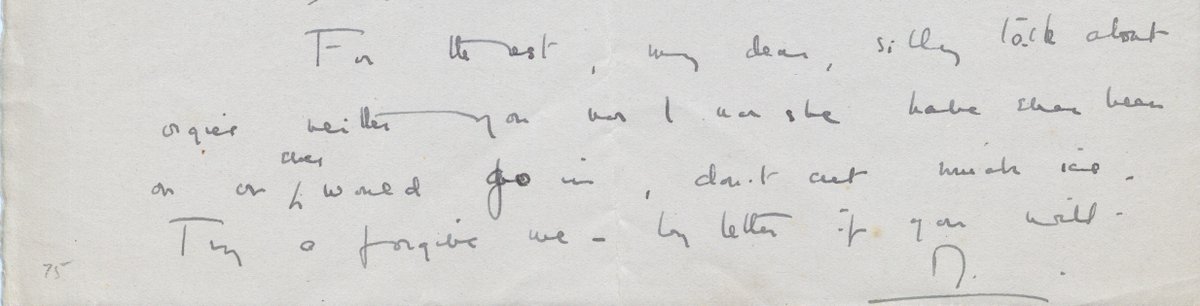 For the rest, my dear, silly talk about
orgies neither you nor I nor she have ever been
ever
on or would go in, don't cut much ice.
Try & forgive me – by letter if you will –
75